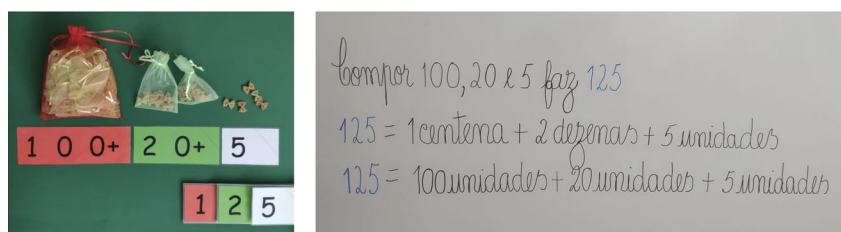 1 0 0+ 2 0+ 5
1 2 5
Compor 100, 20 e 5 faz 125
125 = 1 centena + 2 dezenas + 5 unidades
125 = 100 unidades + 20 unidades + 5 unidades